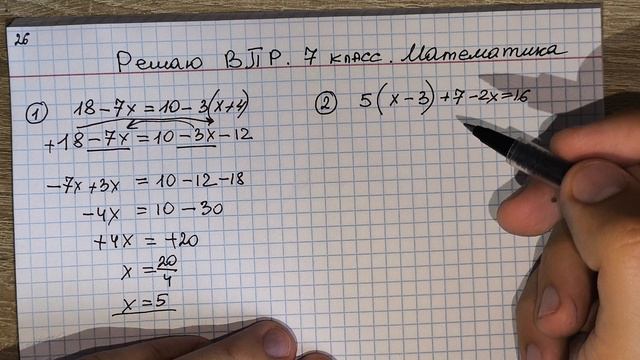 26
Решаю ВПР. 7 класс. Математика
① 18-7x=10-3(x+4)
+18-7x=10-3x-12
-7x+3x=10-12-18
-4x=10-30
+4x=+20
x=20/4
x=5
② 5(x-3)+7-2x=16